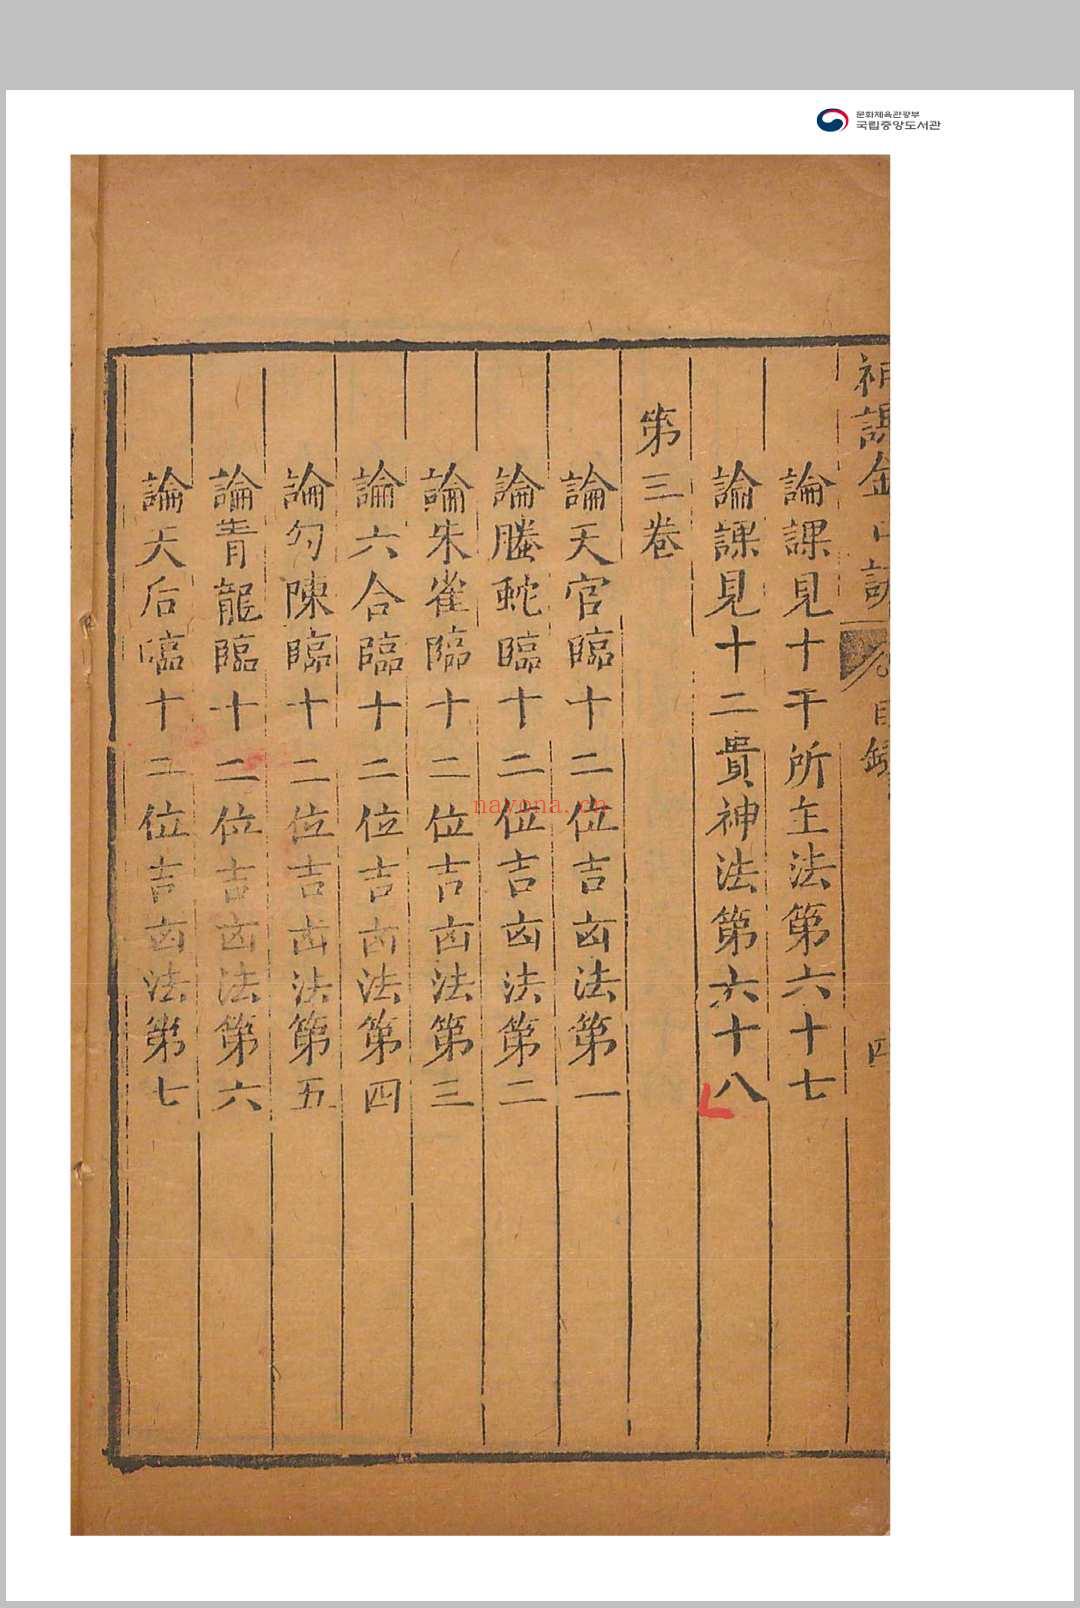 문화체육관광부
국립중앙도서관
神課金口訣
目録
四
論課見十干所主法第六十七
論課見十二貴神法第六十八
第三卷
論天官臨十二位吉凶法第一
論螣蛇臨十二位吉凶法第二
論朱雀臨十二位吉凶法第三
論六合臨十二位吉凶法第四
論勾陳臨十二位吉凶法第五
論青龍臨十二位吉凶法第六
論天后臨十二位吉凶法第七
nayona.cn